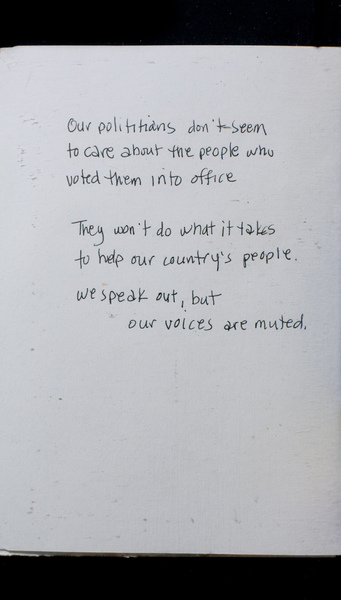 Our polititians don't seem
to care about the people who
voted them into office
They won't do what it takes
to help our country's people.
we speak out, but
our voices are muted.